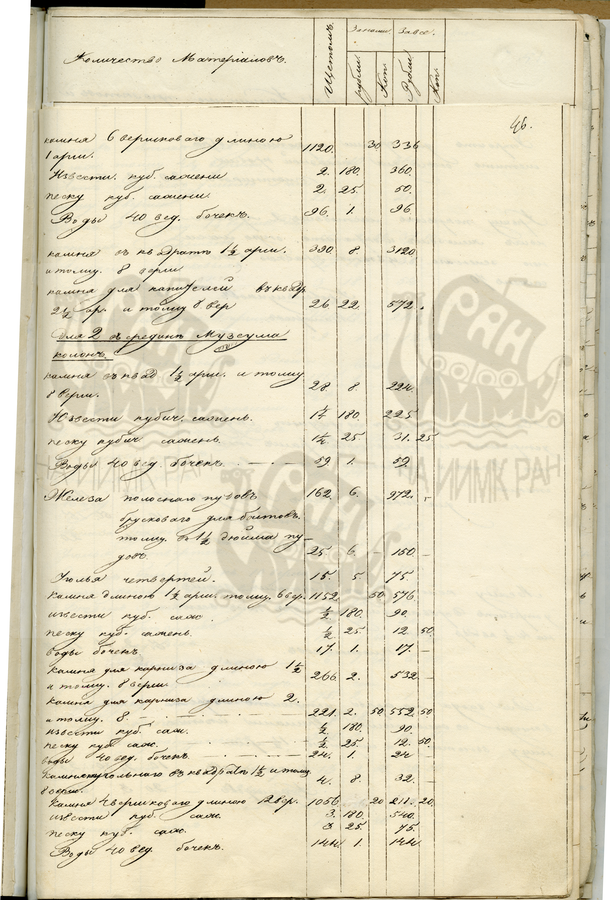 Количество Матеріаловъ. Щетомъ. За един. За все.
Рубли Коп. Рубли Коп.
46.
камня 6 вершковаго длиною
1 арш. 1120. 30 336
Извести куб. сажени 2. 180. 360.
песку куб. сажени 2. 25. 50.
Воды 40 вед. бочекъ. 96. 1. 96
камня въ квадратъ 1½ арш. 390. 8. 3120
и толщ. 8 верш
камня для капителей въ квадр
2½ ар. и толщ 8 вер 26. 22. 572.
Для 2 въ срединѣ Музеума
колонъ.
камня въ квад 1½ арш. и толщ
8 верш. 28 8. 224.
Извести кубич. сажень. 1¼ 180. 225
песку кубич сажень. 1¼ 25 31. 25
Воды 40 вед. бочекъ. 59 1. 59
Железа полоснаго пудовъ 162. 6. 972. –
брусковаго для болтовъ
толщ. въ 1½ дюйма пу-
довъ. 25. 6. – 150. –
Уголья четвертей. 15. 5. 75. –
Камня длиною 1½ арш. толщ. 6 вер. 1152. 50 576
извести куб. саж. ½ 180. 90.
песку куб. сажень. ½ 25. 12. 50.
воды бочекъ 17. 1. 17. –
Камня для карниза длиною 1½
и толщ. 8 верш. 266. 2. 532. –
Камня для карниза длиною 2.
и толщ. 8 221. 2. 50 552. 50
извести куб. саж. ½ 180. 90.
песку куб. саж. ½ 25. 12. 50.
воды 40 вед. бочекъ. 24. 1. 24
Камня угольнаго въ квадратъ 1½ и толщ
8 верш. 4. 8. 32. –
Камня 4 вершковаго длиною 12 вер. 1056. 20 211. 20.
извести куб. саж. 3. 180. 540.
песку куб. саж. 3 25. 75.
Воды 40 вед. бочекъ. 144. 1. 144.
РАН
ИИМК
НА ИИМК РАН
РАН
ИИМК
НА ИИМК РАН
РАН
ИИМК